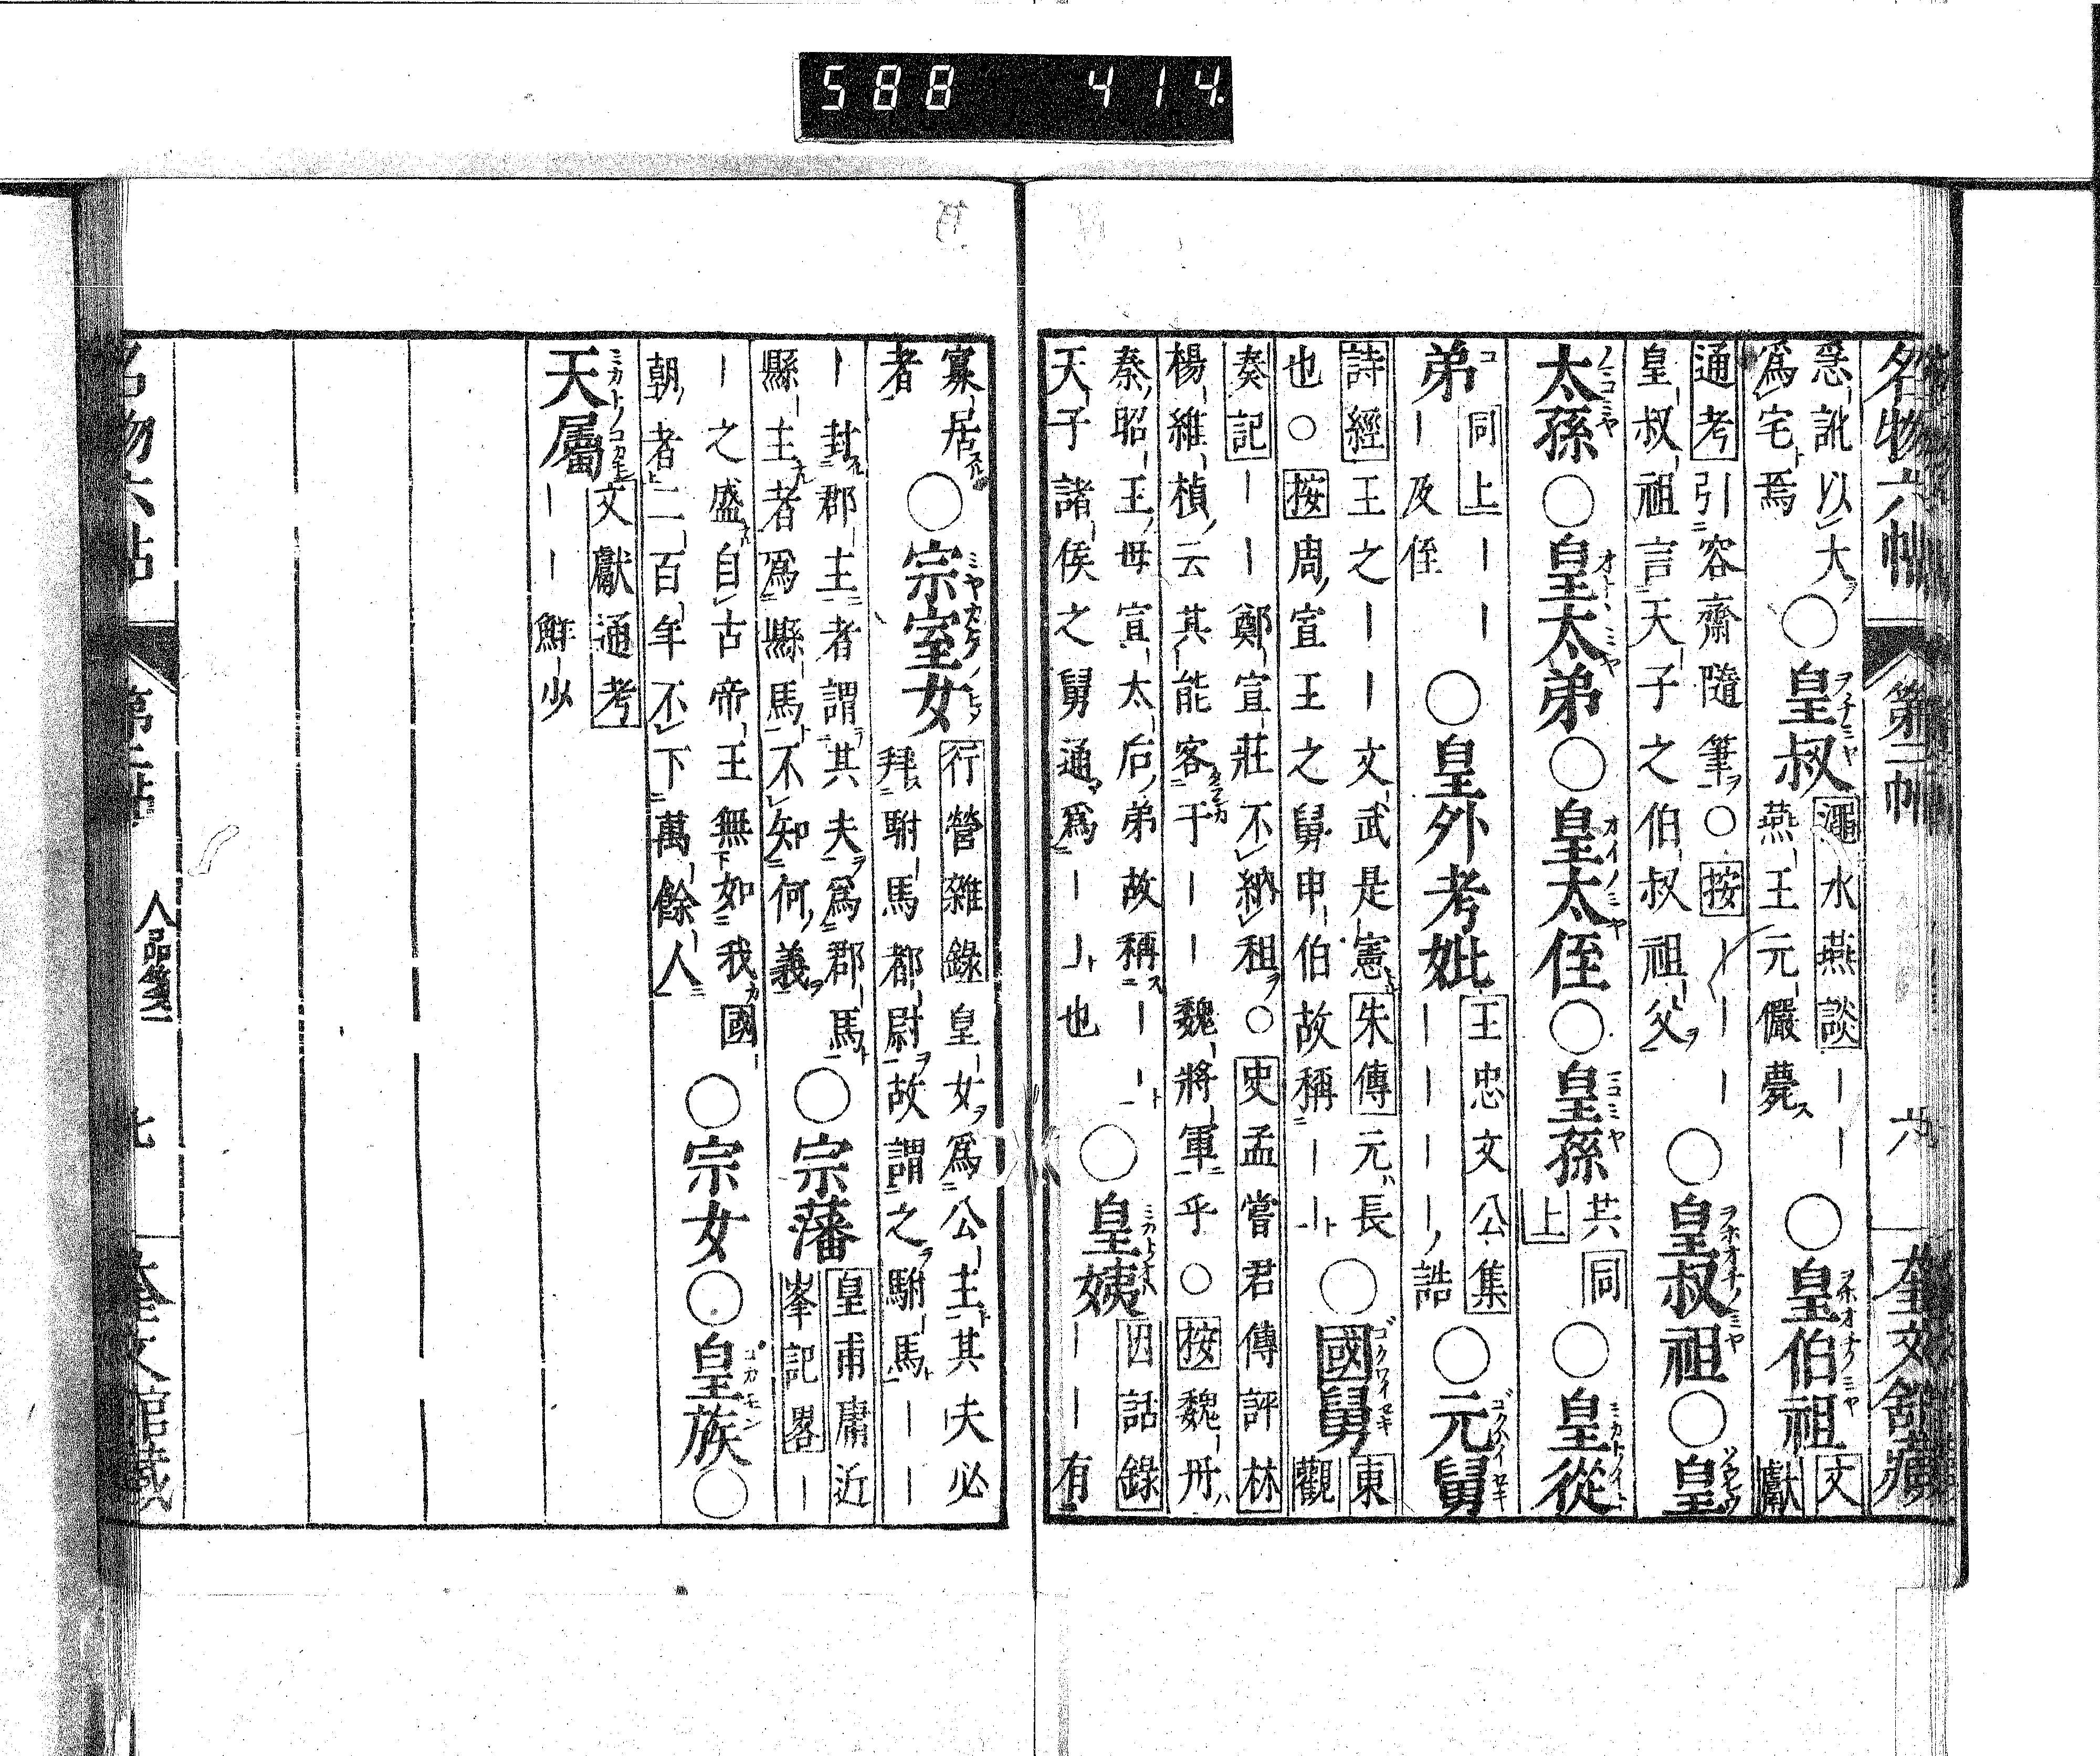 588 414.
名物六帖 第二帖 六 奎文舘藏
急訛以大
為宅焉
○皇叔
澠水燕談｜｜
燕王元儼薨
○皇伯祖
文
獻
通考引容齋隨筆○按｜｜｜
皇叔祖言天子之伯叔祖父
○皇叔祖○皇
太孫○皇太弟○皇太侄○皇孫
共同
上
○皇從
弟
同上｜｜
｜及侄
○皇外考妣
王忠文公集
｜｜｜｜誥
○元舅
詩經王之｜｜文武是憲朱傳元長
也○按周宣王之舅申伯故稱｜｜
○國舅
東
觀
奏記｜｜鄭宣莊不納租○史孟嘗君傳評林
楊維楨云其能客于｜｜魏將軍乎○按魏冉
秦昭王母宣太后弟故稱｜｜
天子諸侯之舅通為｜｜也
○皇姨
因話錄
｜｜有
寡居
者
○宗室女
行營雜錄皇女為公主其夫必
拜駙馬都尉故謂之駙馬｜｜
｜封郡主者謂其夫為郡馬
縣主者為縣馬不知何義
○宗藩
皇甫庸近
峯記畧｜
｜之盛自古帝王無如我國
朝者二百年不下萬餘人
○宗女○皇族○
天屬
文獻通考
｜｜鮮少
名物六帖 第二帖 人品箋二 七 奎文館藏